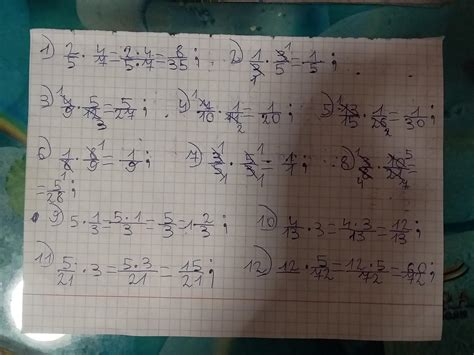 1) 2/5 · 4/7 = 2·4/5·7 = 8/35; 2) 1/3 · 3/5 = 1/5;
3) 4/9 · 5/12 = 5/27; 4) 4/10 · 1/2 = 1/20; 5) 13/15 · 1/26 = 1/30;
6) 1/8 · 8/9 = 1/9; 7) · = 1/1; 8) · 10/ =
= 5/28;
9) 5 · 1/3 = 5·1/3 = 5/3 = 1 2/3; 10) 4/13 · 3 = 4·3/13 = 12/13;
11) 5/21 · 3 = 5·3/21 = 15/21; 12) 12 · 5/72 = 12·5/72 = 60/72;